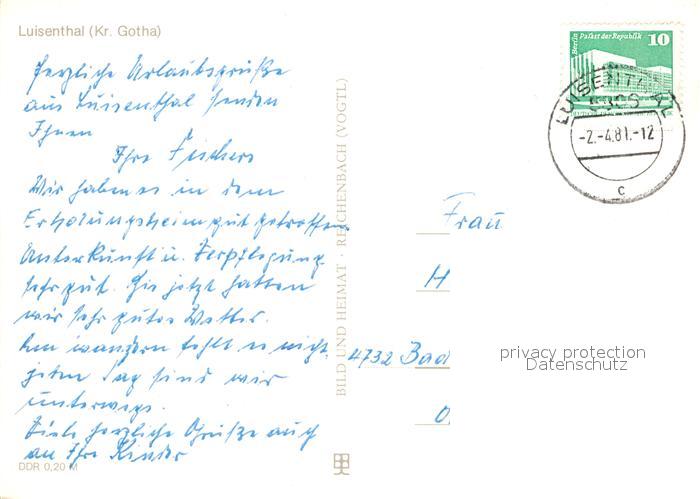 Luisenthal (Kr. Gotha)
Herzliche Urlaubsgrüße
aus Luisenthal senden
Ihnen
Ihre Fischers
Wir haben es in dem
Erholungsheim gut getroffen.
Unterkunft u. Verpflegung
sehr gut. Bis jetzt hatten
wir sehr gutes Wetter.
wandern fehlt es nicht,
jeden Tag sind wir
unterwegs.
Viele herzliche Grüße auch
an Ihre Kinder
DDR 0,20 M
BILD UND HEIMAT · REICHENBACH (VOGTL)
Berlin Palast der Republik
10
LUISENTHAL
-2.-4.81.-12
c
Frau
H
4732 Bad
O
privacy protection
Datenschutz